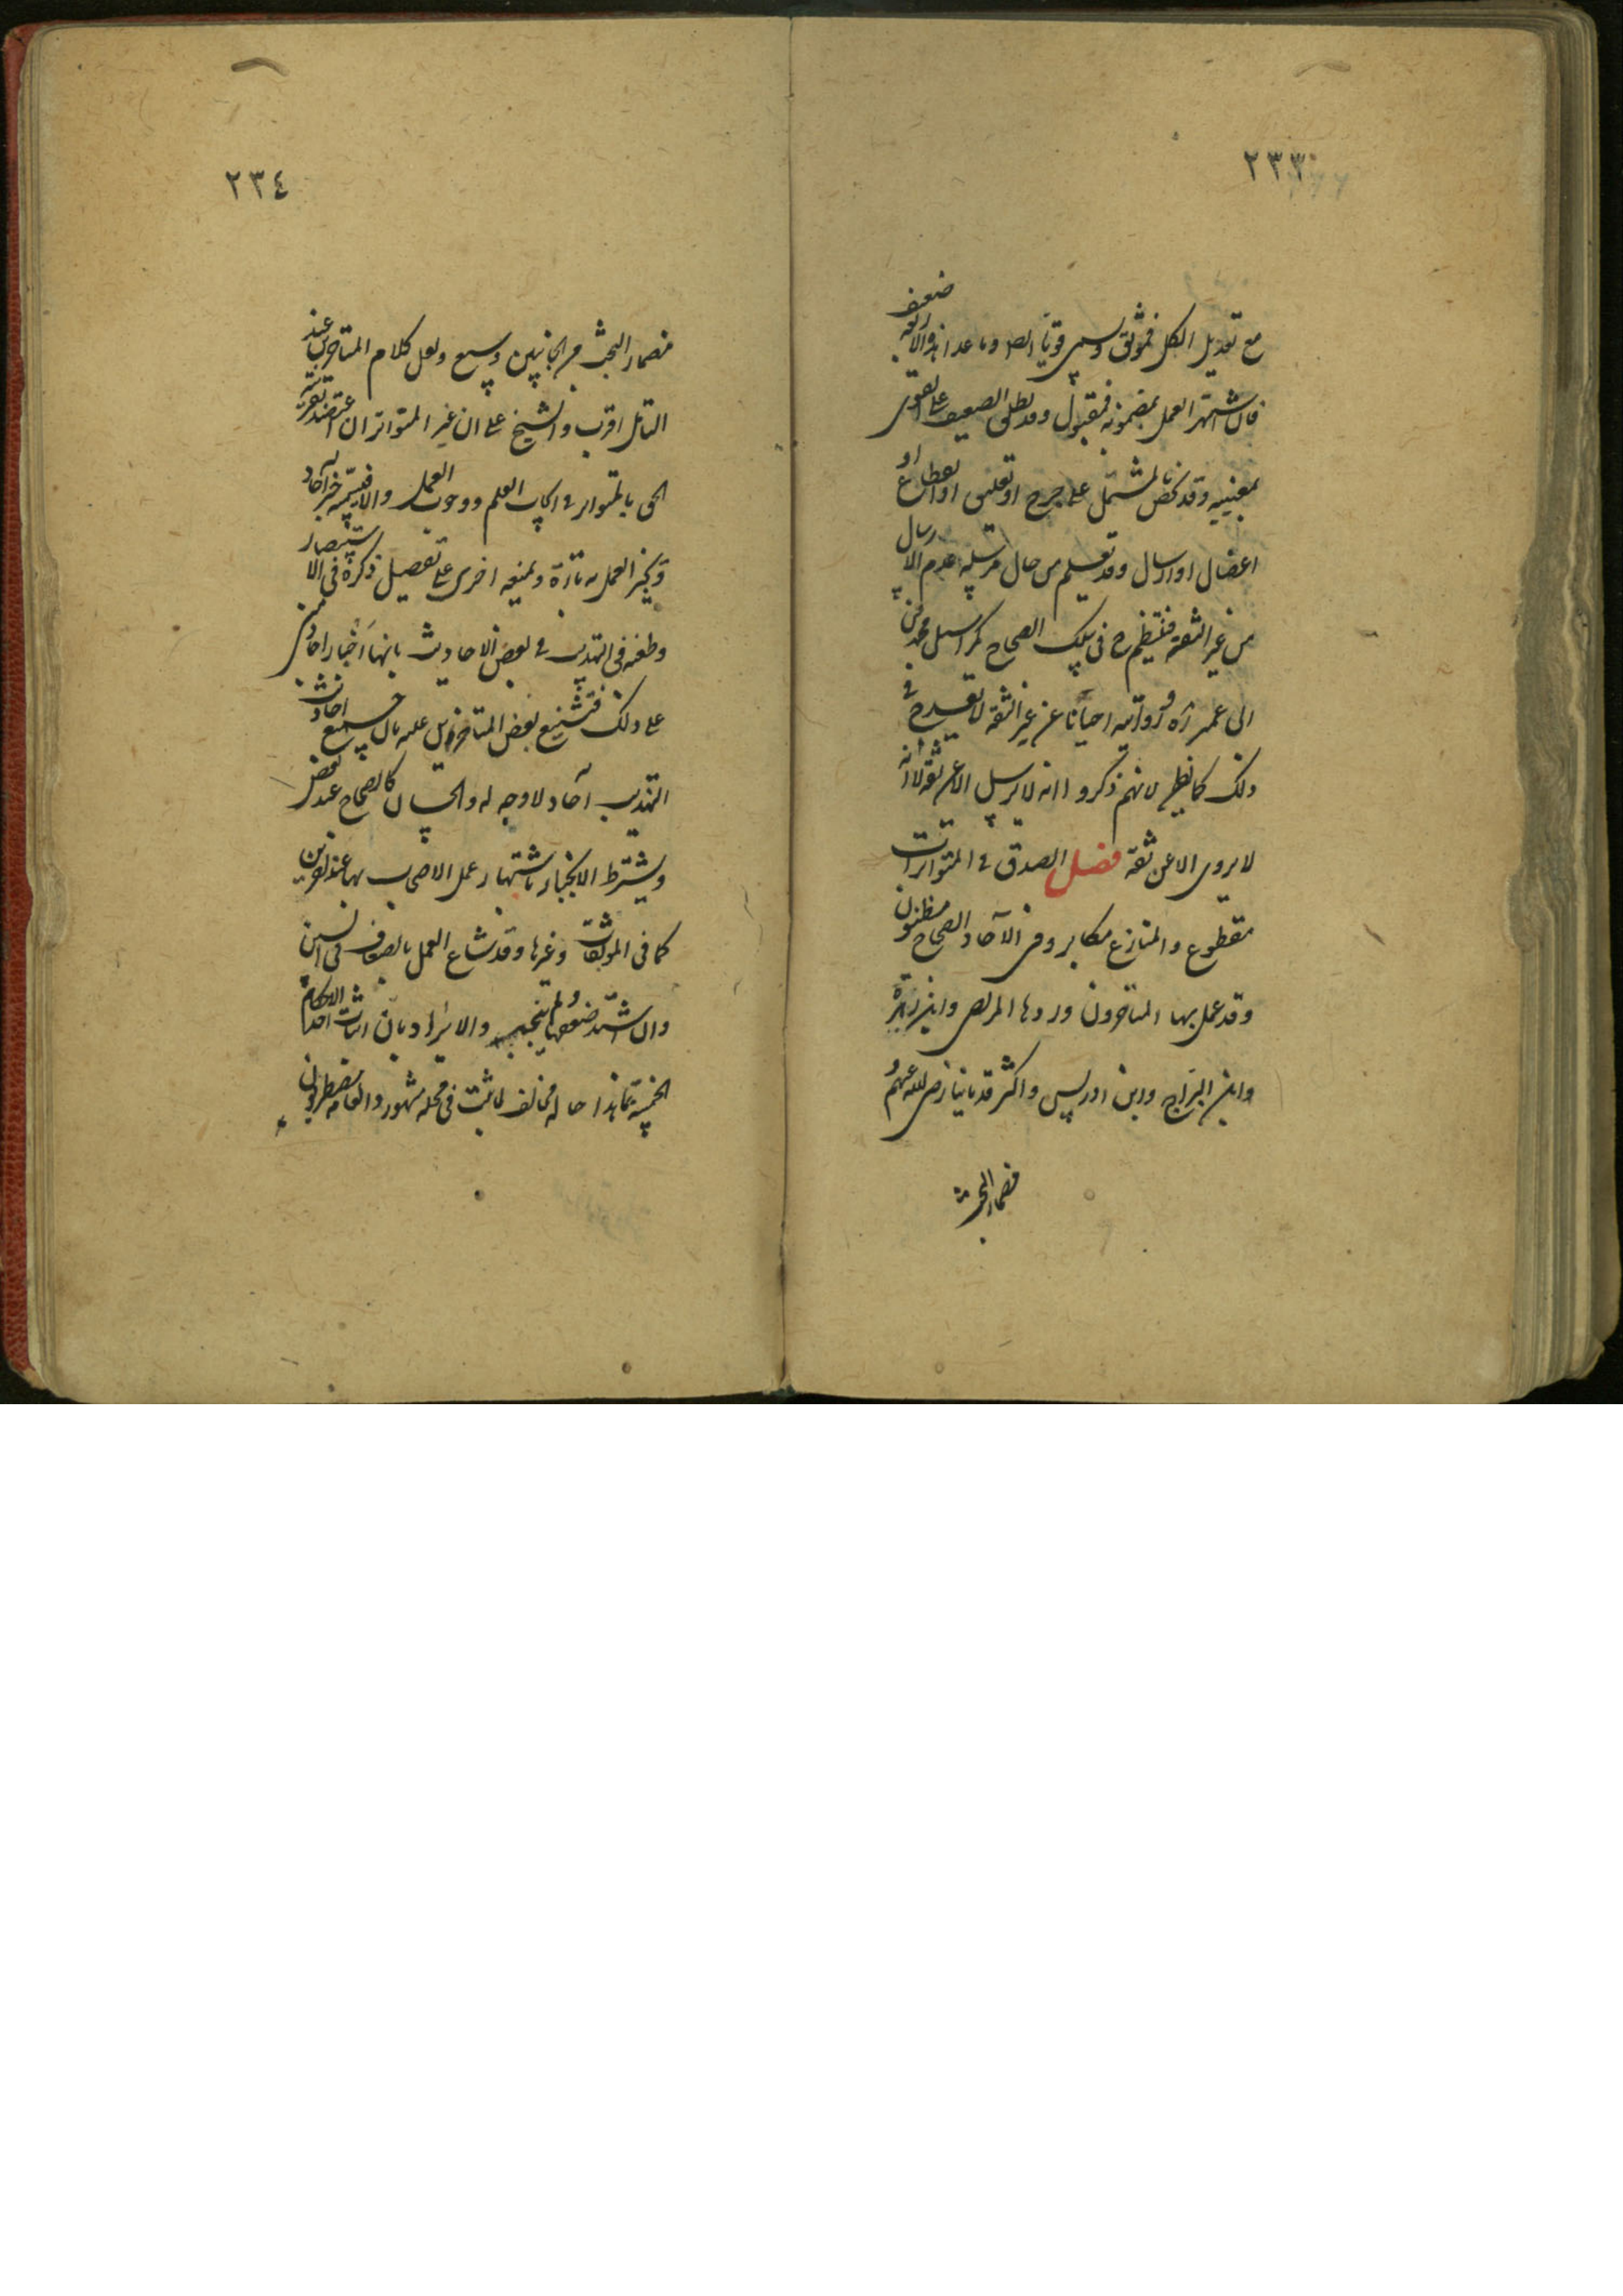 ٢٣٣
مع تعديل الكل فموثق ويسمى قويا ايضا وما عدا هذه الاربعة ضعيف
فان اشتهر العمل بمضمونه فمقبول وقد يطلق الضعيف على القوى
بمعنييه وقد يخص بالمشتمل على جرح او تعليق او انقطاع او
اعضال او ارسال وقد يعلم من حال مرسله عدم الارسال
من غير الثقة فينتظم ح فى سلك الصحاح كمراسيل محمد بن
ابى عمير ره وروايته احيانا عن غير الثقة لا يقدح فى
ذلك كما يظن لانهم ذكروا انه لا يرسل الا عن ثقة لا انه
لا يروى الا عن ثقة فصل الصدق فى المتواترات
مقطوع والمنازع مكابر وفى الآحاد الصحاح مظنون
وقد عمل بها المتاخرون وردها المرتضى وابن زهرة
وابن البراج وابن ادريس واكثر قدمائنا رضى الله عنهم و
فمضمار البحث
٢٣٤
فمضمار البحث من الجانبين وسيع ولعل كلام المتاخرين عند
التامل اقرب والشيخ على ان غير المتواتر ان اعتضد بقرينة
الحق بالمتواتر فى ايجاب العلم ووجوب العمل والا فيسميه خبر آحاد
ويجيز العمل به تارة ويمنعه اخرى على تفصيل ذكره فى الاستبصار
وطعنه فى التهذيب فى بعض الاحاديث بانها اخبار احاد مبنى
على ذلك فتشنيع بعض المتاخرين عليه بان جميع احاديث
التهذيب آحاد لا وجه له والحسان كالصحاح عند بعض
ويشترط الانجبار باشتهار عمل الاصحاب بها عند آخرين
كما فى الموثقات وغيرها وقد شاع العمل بالضعاف فى السنن
وان اشتد ضعفها ولم ينجبر والايراد بان اثبات احد الاحكام
الخمسة بما هذا حاله مخالف لما ثبت فى محله مشهور والعامة مضطربون